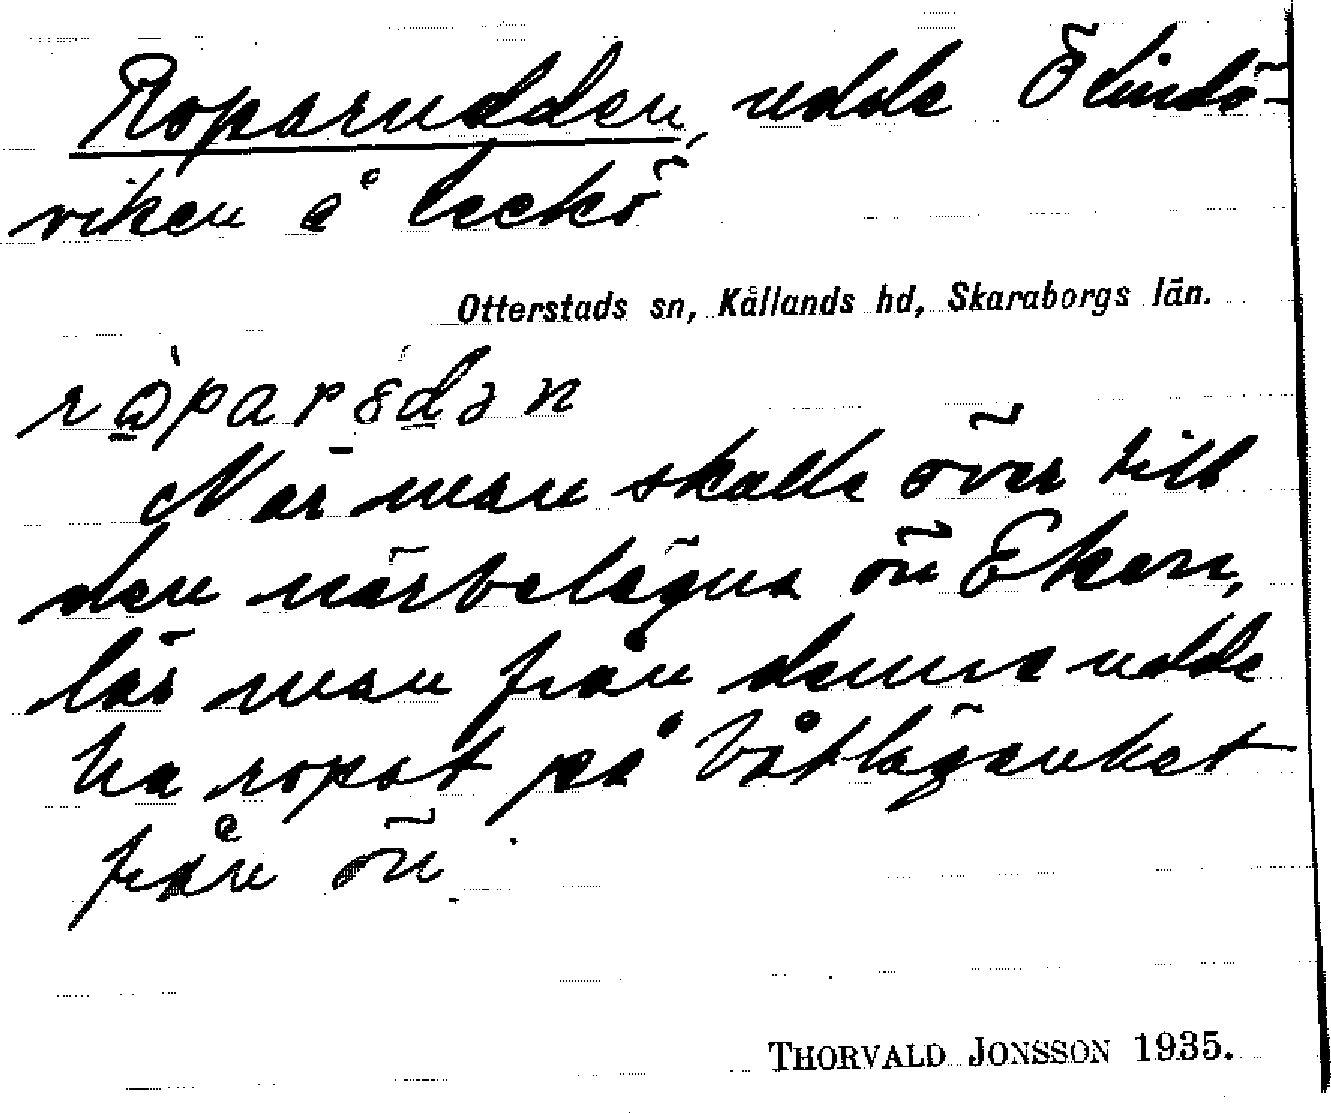 Roparudden, udde Ö Lindö-
viken å Leckö
Otterstads sn, Kållands hd, Skaraborgs län.
Når man skulle över till
den närbelägna ön Eken,
lär man från denna udde
ha ropat på båtlägenhet
från ön.
THORVALD JONSSON 1935.